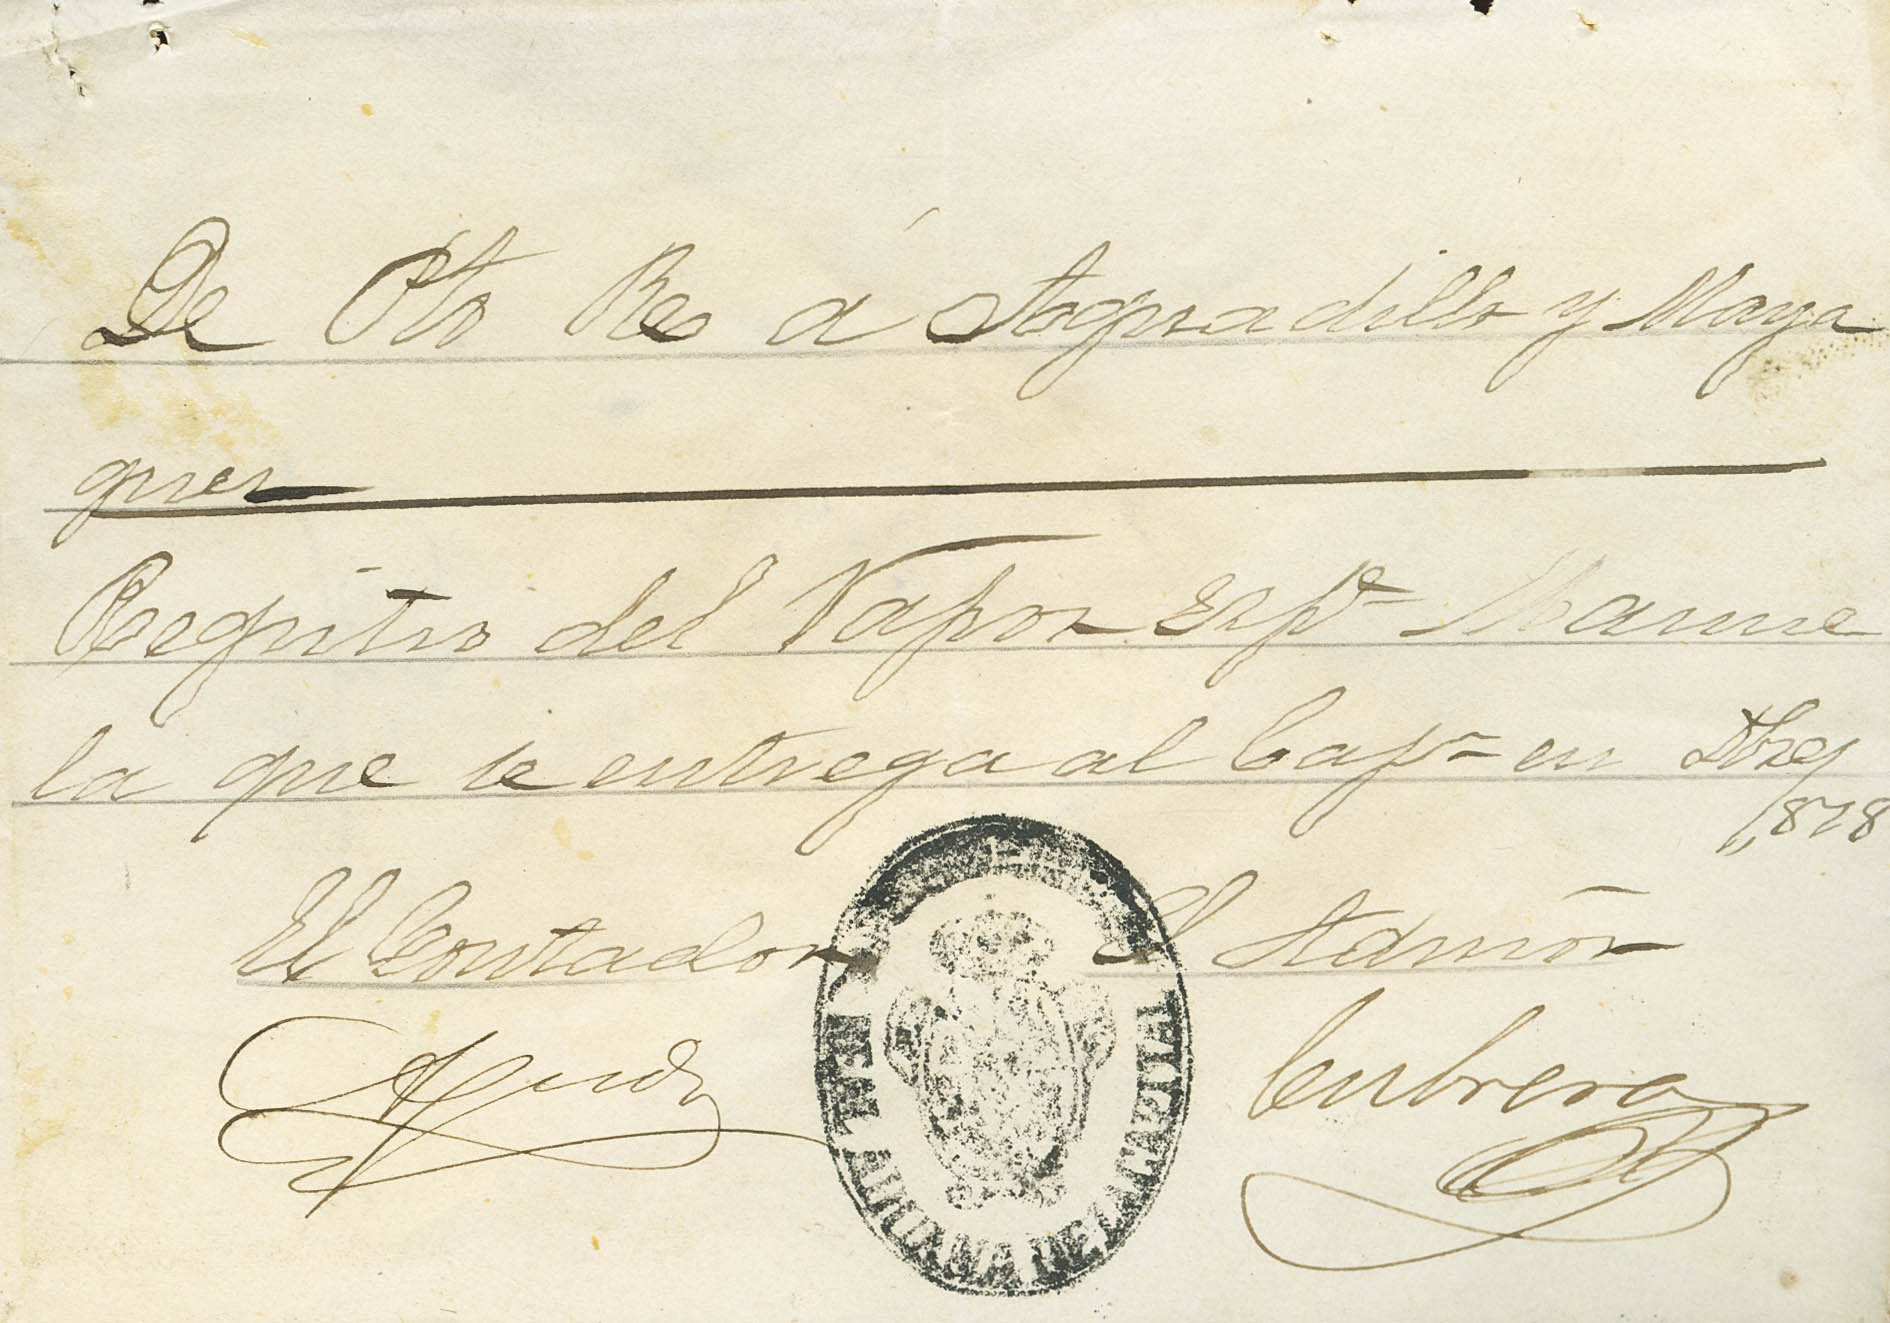 De Pto Rco á Aguadilla y Maya
guez
Registro del Vapor Espl Manue
la que se entrega al Capn en Dbre
1,878
El Contador El Admōr
Cubrera
ADUANA DE LA CAPITAL